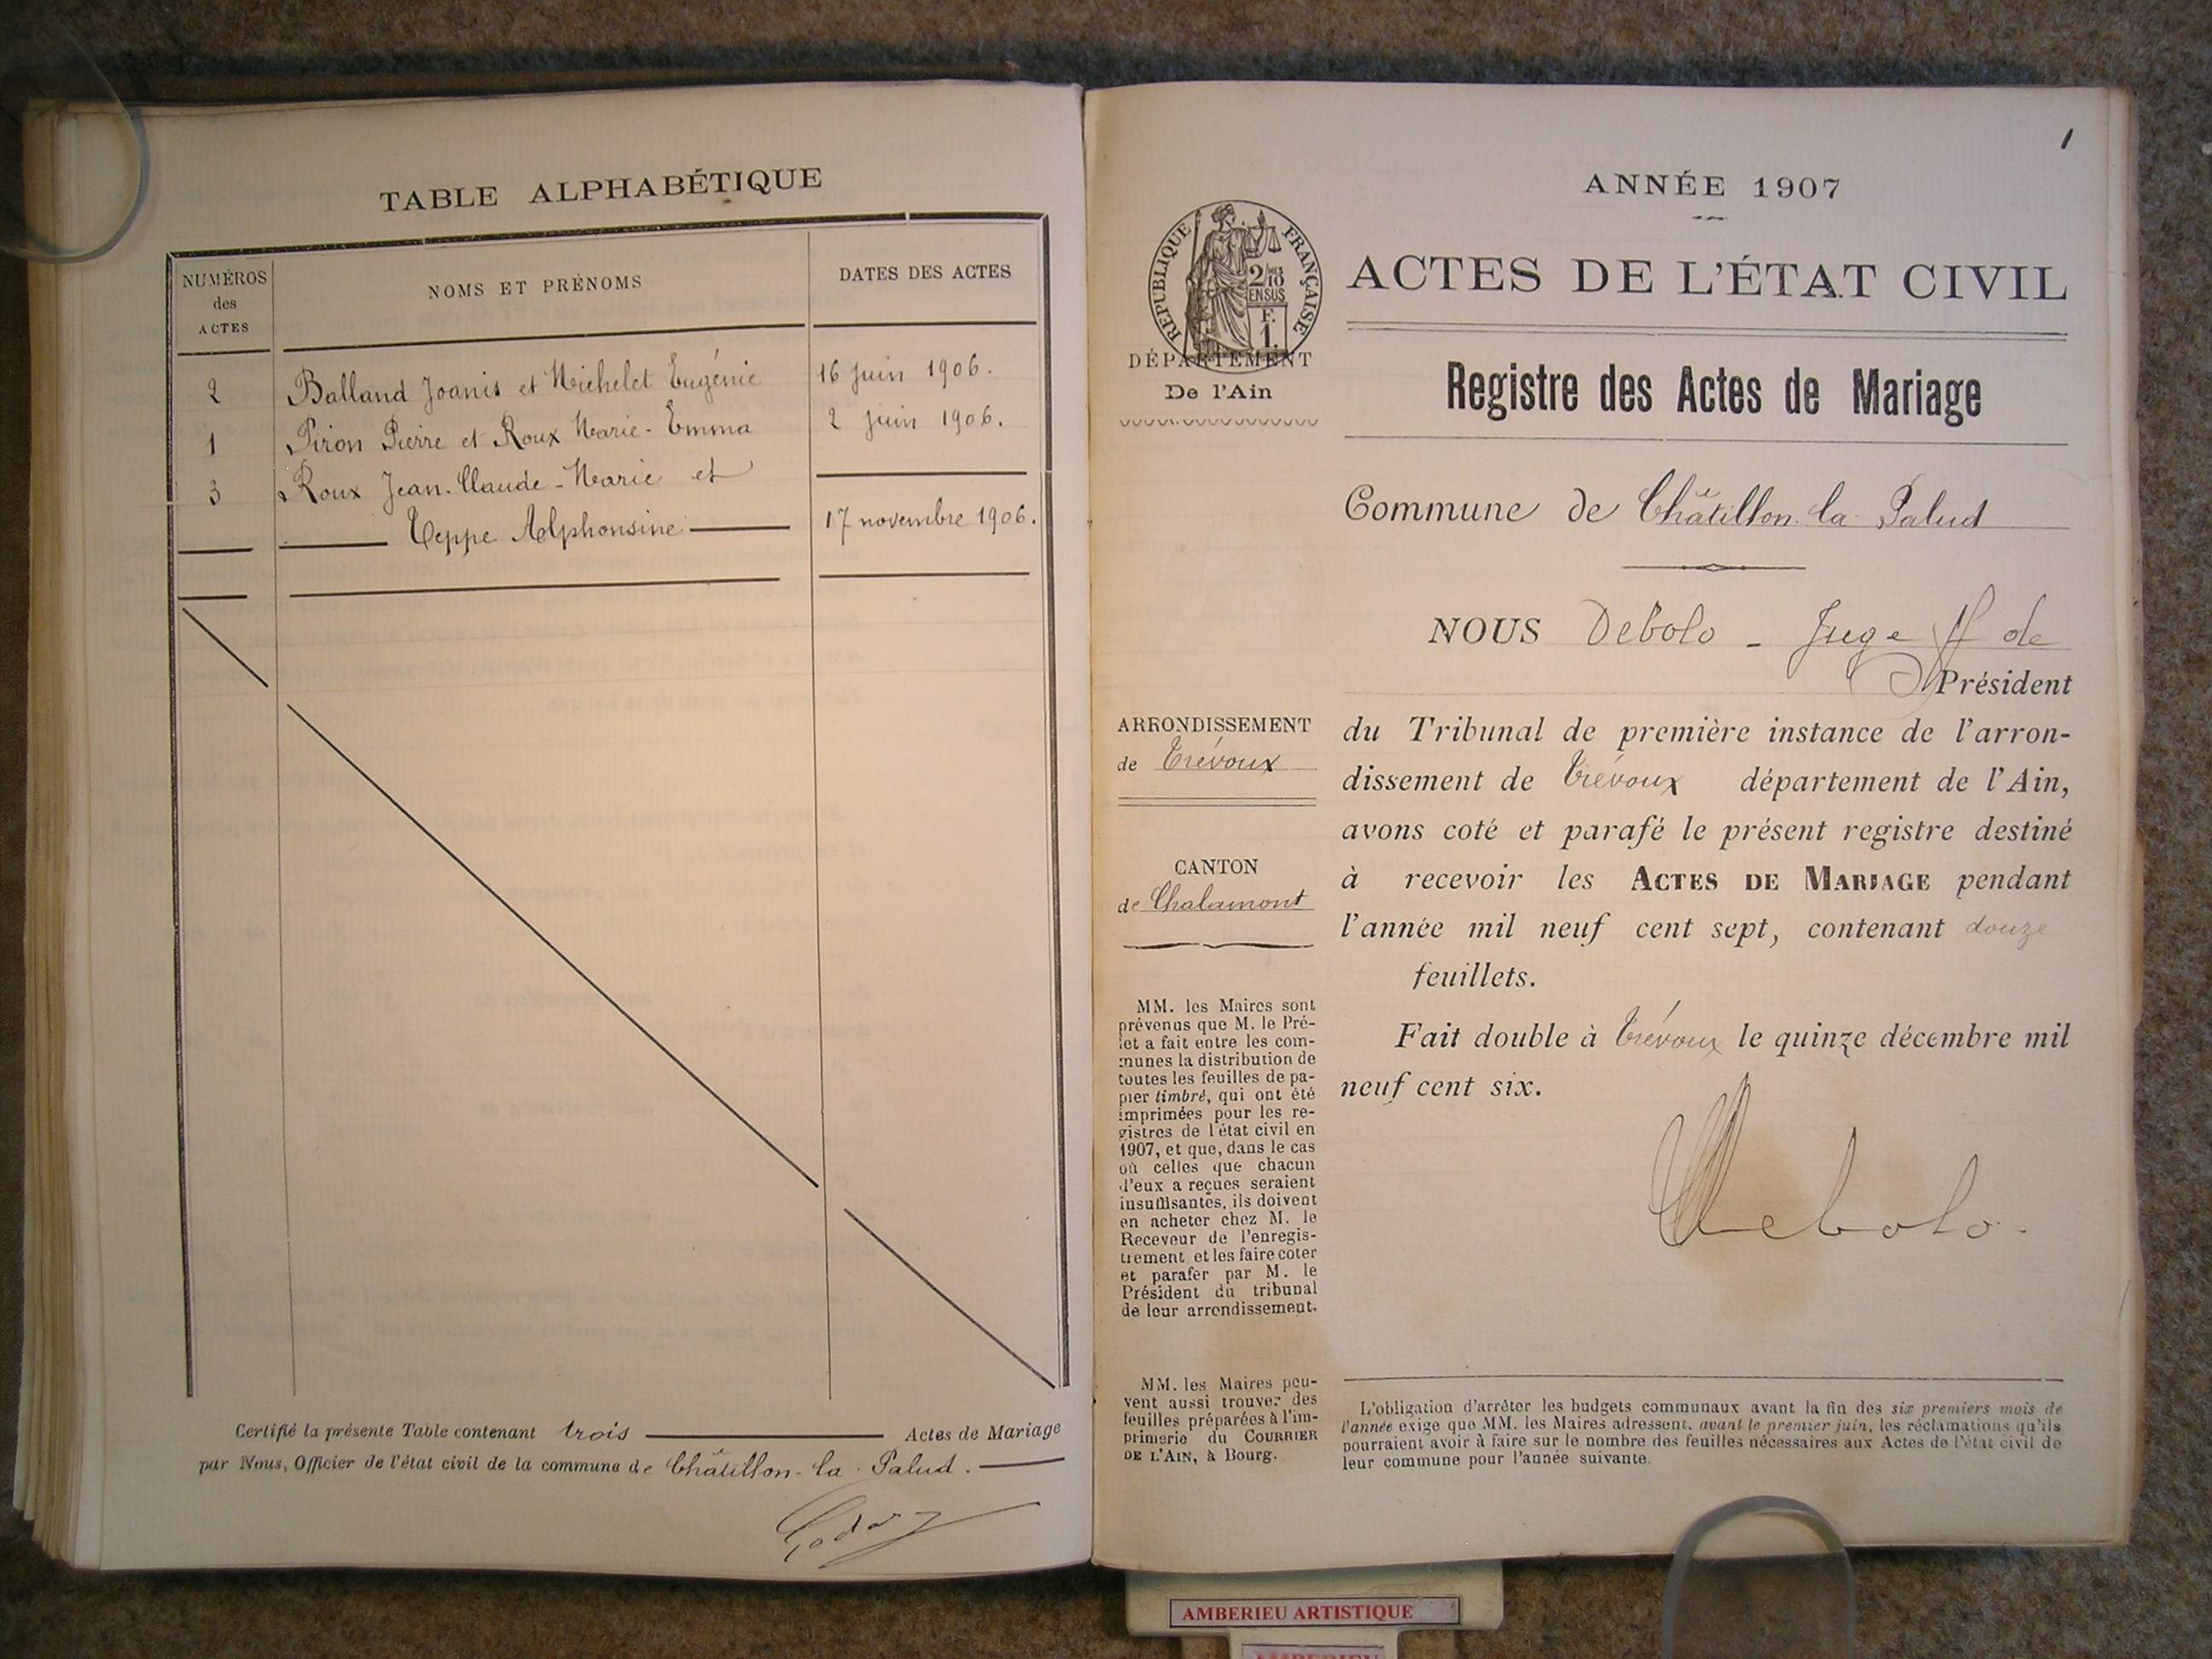 TABLE ALPHABÉTIQUE
NUMÉROS
des
ACTES
NOMS ET PRÉNOMS
DATES DES ACTES
2 Balland Joanis et Michelet Eugénie 16 juin 1906.
1 Piron Pierre et Roux Marie-Emma 2 juin 1906.
3 Roux Jean-Claude-Marie et
Teppe Alphonsine 17 novembre 1906.
Certifié la présente Table contenant trois Actes de Mariage
par Nous, Officier de l'état civil de la commune de Châtillon-la-Palud.
1
ANNÉE 1907
RÉPUBLIQUE FRANÇAISE
2/10 MES
EN SUS
F.
1.
DÉPARTEMENT
De l'Ain
ACTES DE L'ÉTAT CIVIL
Registre des Actes de Mariage
Commune de Châtillon-la-Palud
NOUS Debolo - Juge ff de
Président
du Tribunal de première instance de l'arron-
dissement de Trévoux département de l'Ain,
avons coté et parafé le présent registre destiné
à recevoir les ACTES DE MARIAGE pendant
l'année mil neuf cent sept, contenant douze
feuillets.
Fait double à Trévoux le quinze décembre mil
neuf cent six.
Debolo.
ARRONDISSEMENT
de Trévoux
CANTON
de Chalamont
MM. les Maires sont
prévenus que M. le Pré-
fet a fait entre les com-
munes la distribution de
toutes les feuilles de pa-
pier timbré, qui ont été
imprimées pour les re-
gistres de l'état civil en
1907, et que, dans le cas
où celles que chacun
d'eux a reçues seraient
insuffisantes, ils doivent
en acheter chez M. le
Receveur de l'enregis-
trement et les faire coter
et parafer par M. le
Président du tribunal
de leur arrondissement.
MM. les Maires peu-
vent aussi trouver des
feuilles préparées à l'im-
primerie du COURRIER
DE L'AIN, à Bourg.
L'obligation d'arrêter les budgets communaux avant la fin des six premiers mois de
l'année exige que MM. les Maires adressent, avant le premier juin, les réclamations qu'ils
pourraient avoir à faire sur le nombre des feuilles nécessaires aux Actes de l'état civil de
leur commune pour l'année suivante.
AMBERIEU ARTISTIQUE
AMBERIEU